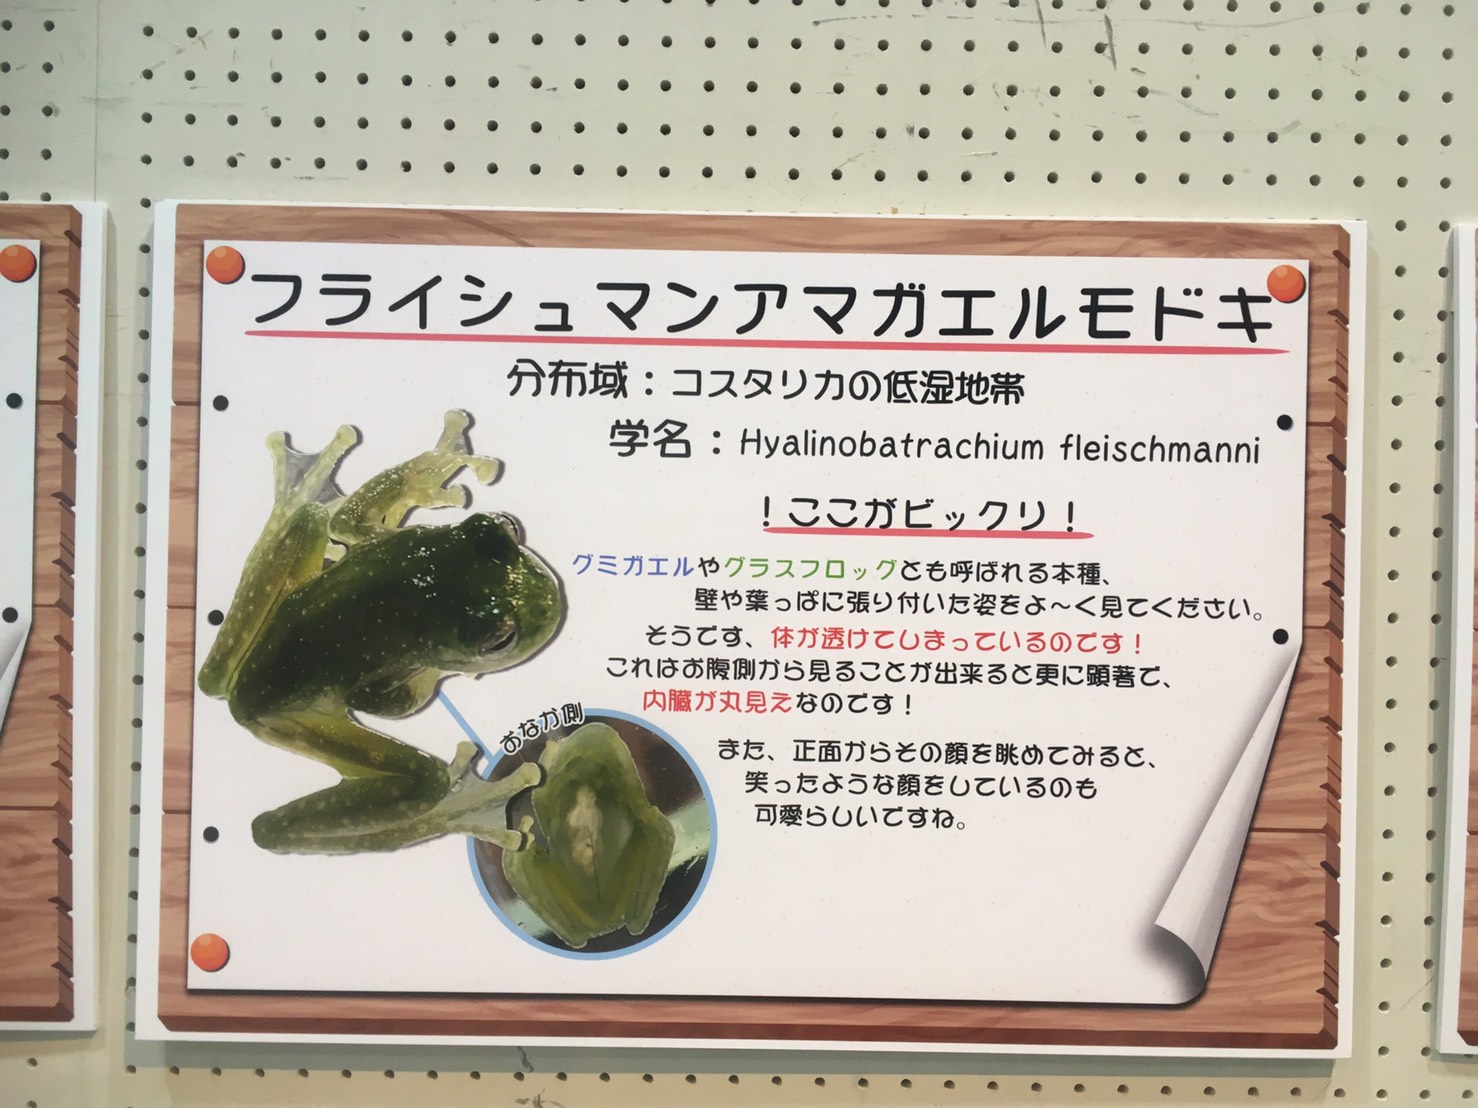 フライシュマンアマガエルモドキ
分布域：コスタリカの低湿地帯
学名：Hyalinobatrachium fleischmanni
！ここがビックリ！
グミガエルやグラスフロッグとも呼ばれる本種、
壁や葉っぱに張り付いた姿をよ～く見てください。
そうです、体が透けてしまっているのです！
これはお腹側から見ることが出来ると更に顕著で、
内臓が丸見えなのです！
おなか側
また、正面からその顔を眺めてみると、
笑ったような顔をしているのも
可愛らしいですね。